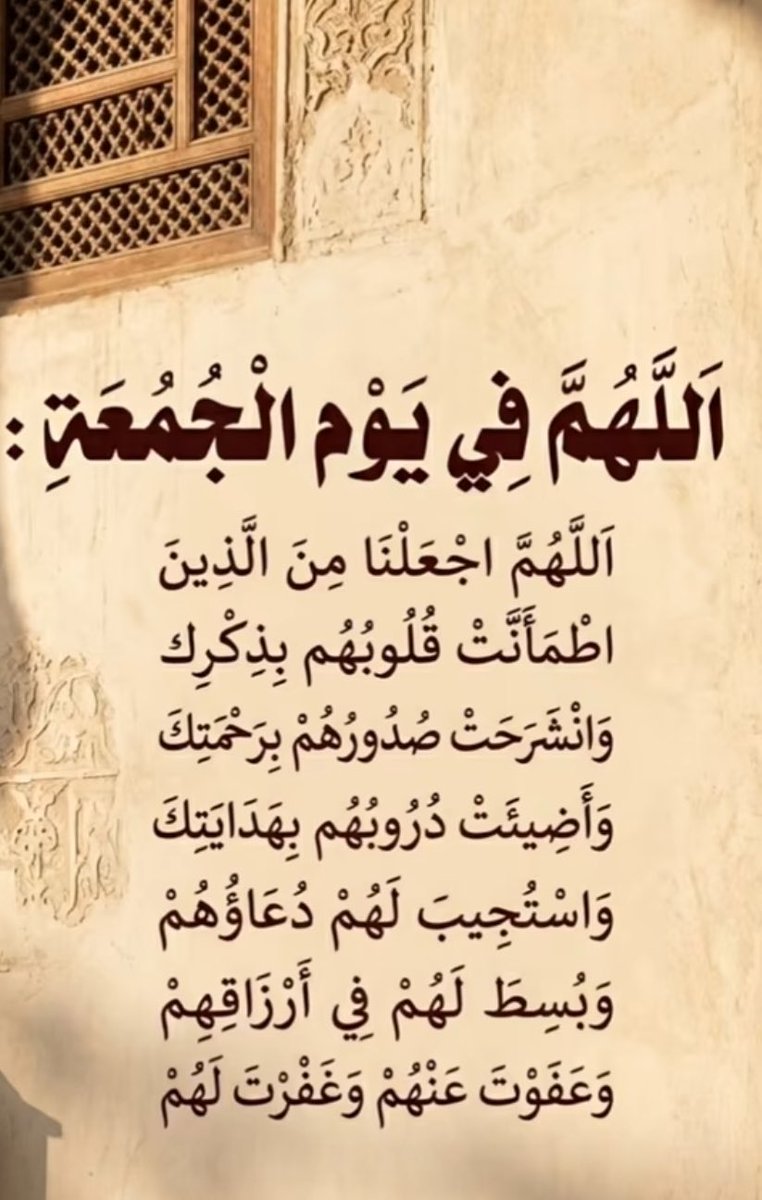 اَللَّهُمَّ فِي يَوْم الْجُمُعَةِ :
اَللَّهُمَّ اجْعَلْنَا مِنَ الَّذِينَ
اطْمَأَنَّتْ قُلُوبُهُم بِذِكْرِك
وَانْشَرَحَتْ صُدُورُهُمْ بِرَحْمَتِكَ
وَأَضِيئَتْ دُرُوبُهُم بِهَدَايَتِكَ
وَاسْتُجِيبَ لَهُمْ دُعَاؤُهُمْ
وَبُسِطَ لَهُمْ فِي أَرْزَاقِهِمْ
وَعَفَوْتَ عَنْهُمْ وَغَفْرْتَ لَهُمْ